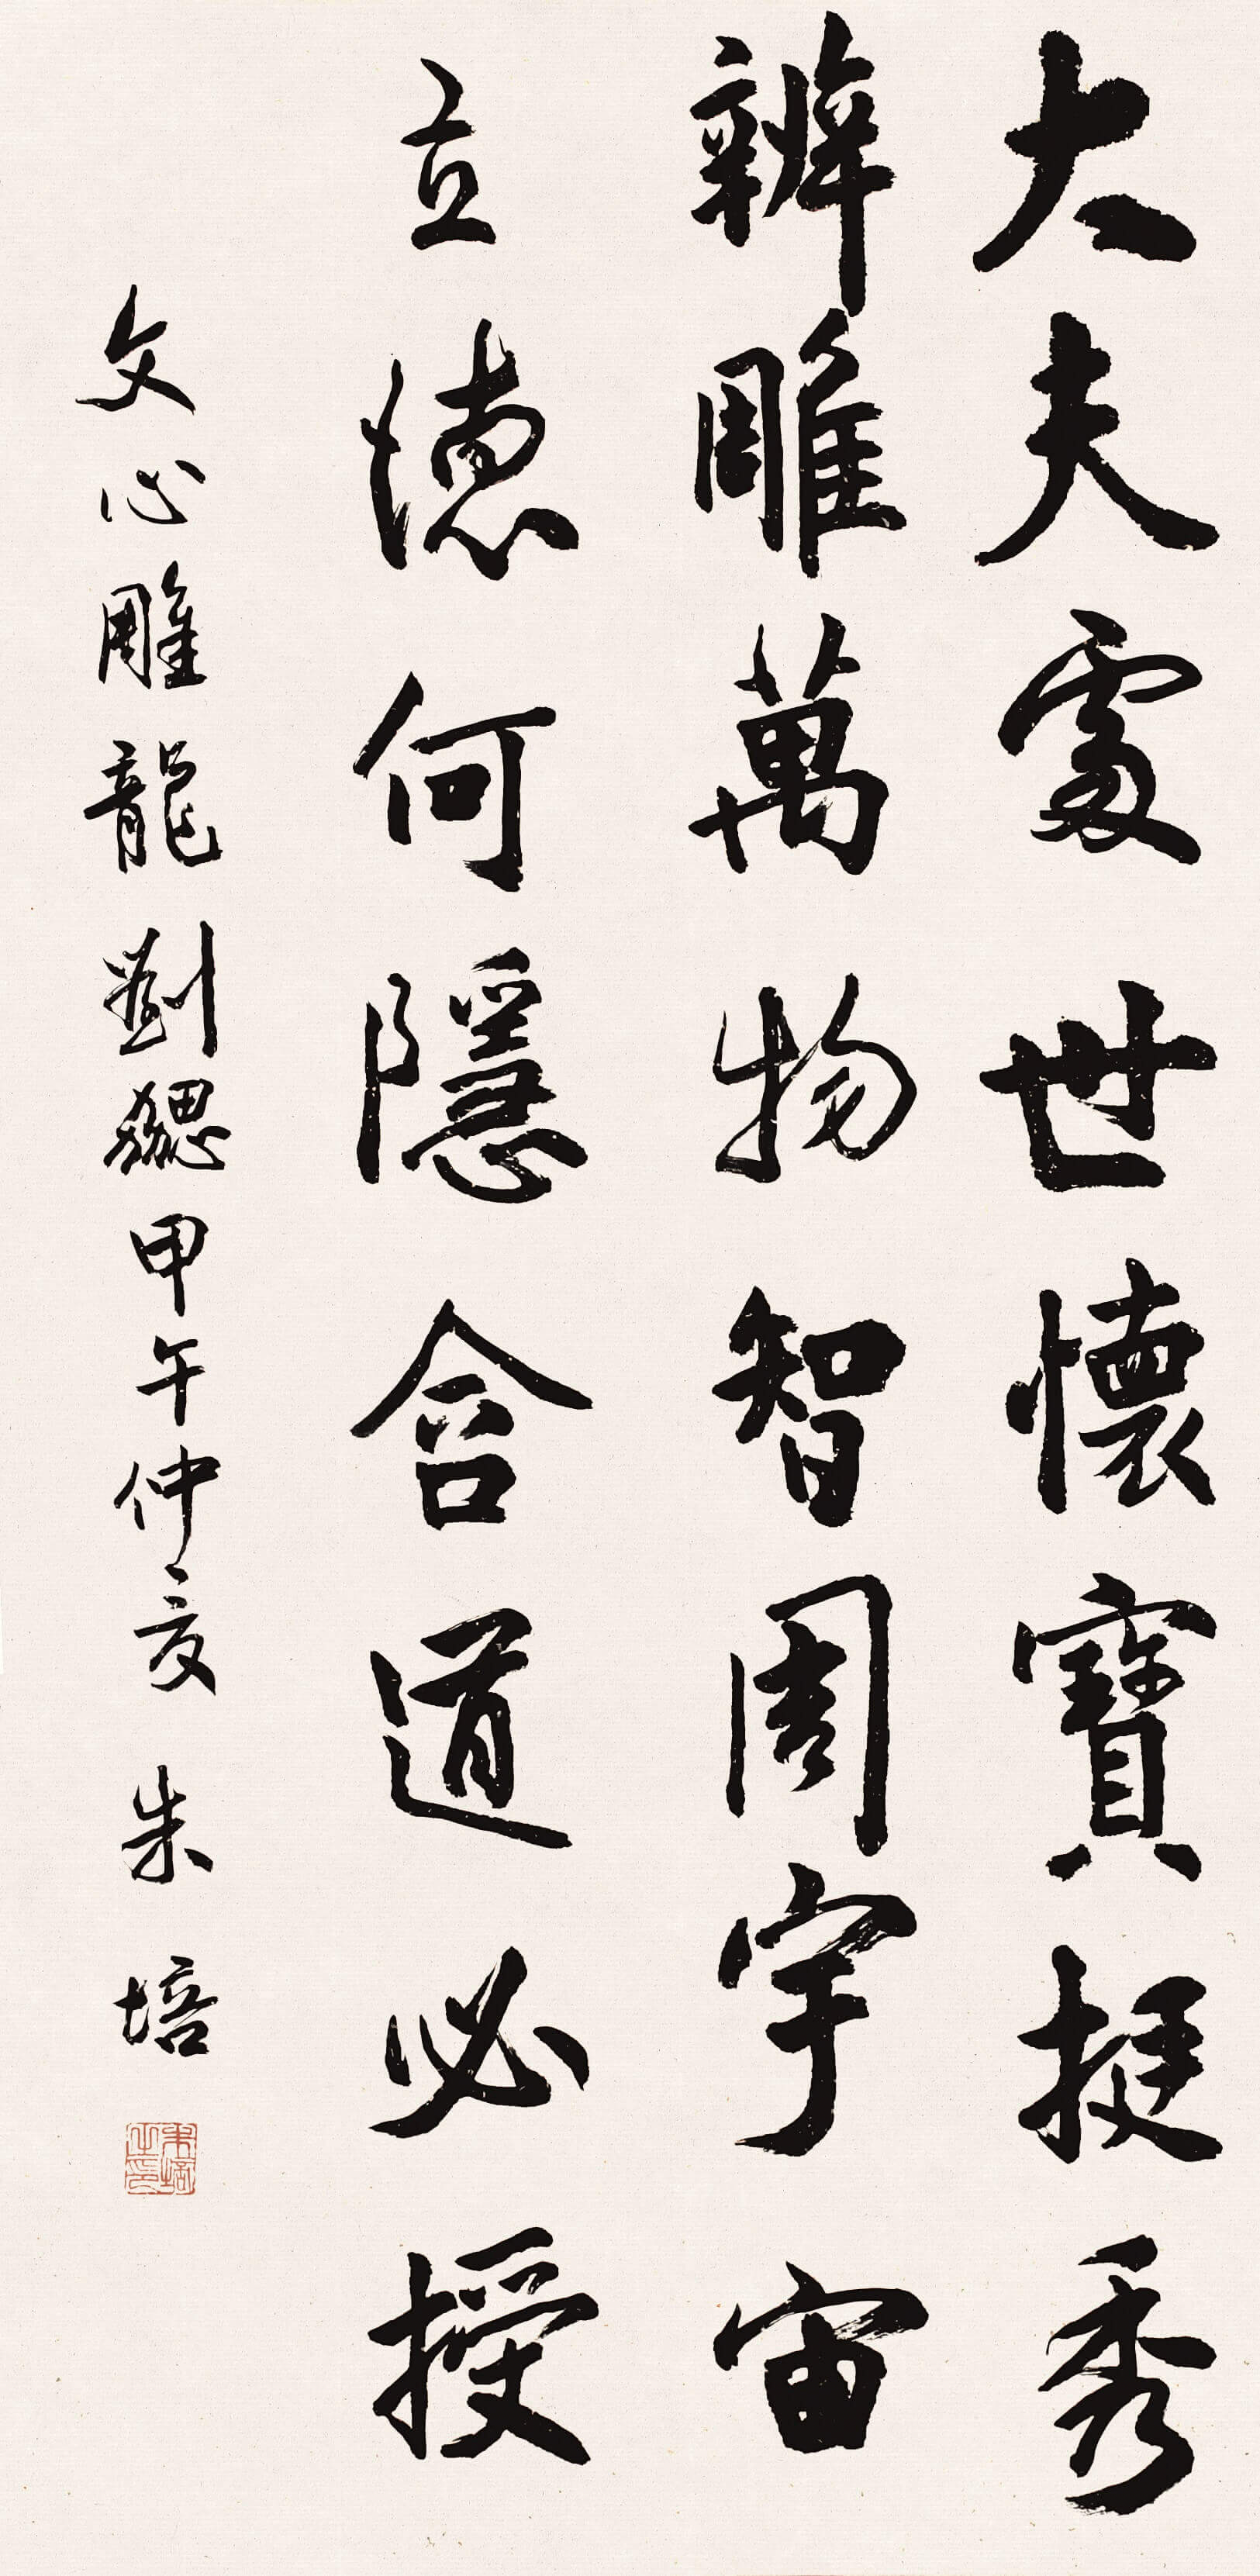 大夫處世懷寶挺秀
辨雕萬物智周宇宙
立德何隱含道必授
文心雕龍劉勰甲午仲夏朱培
朱培之印